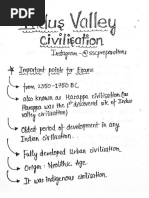 Indus Valley
Civilisation
Instagram - @sscpreparationn
* Important points for Exams
→ from 2350-1750 BC
→ also known as Harappa civilisation (as
Harappa was the 1st discovered site of Indus
valley civilisation)
→ Oldest period of development in any
Indian civilisation.
→ Fully developed Urban civilisation
→ Origin: Neolithic Age
→ It was indigenous civilisation.